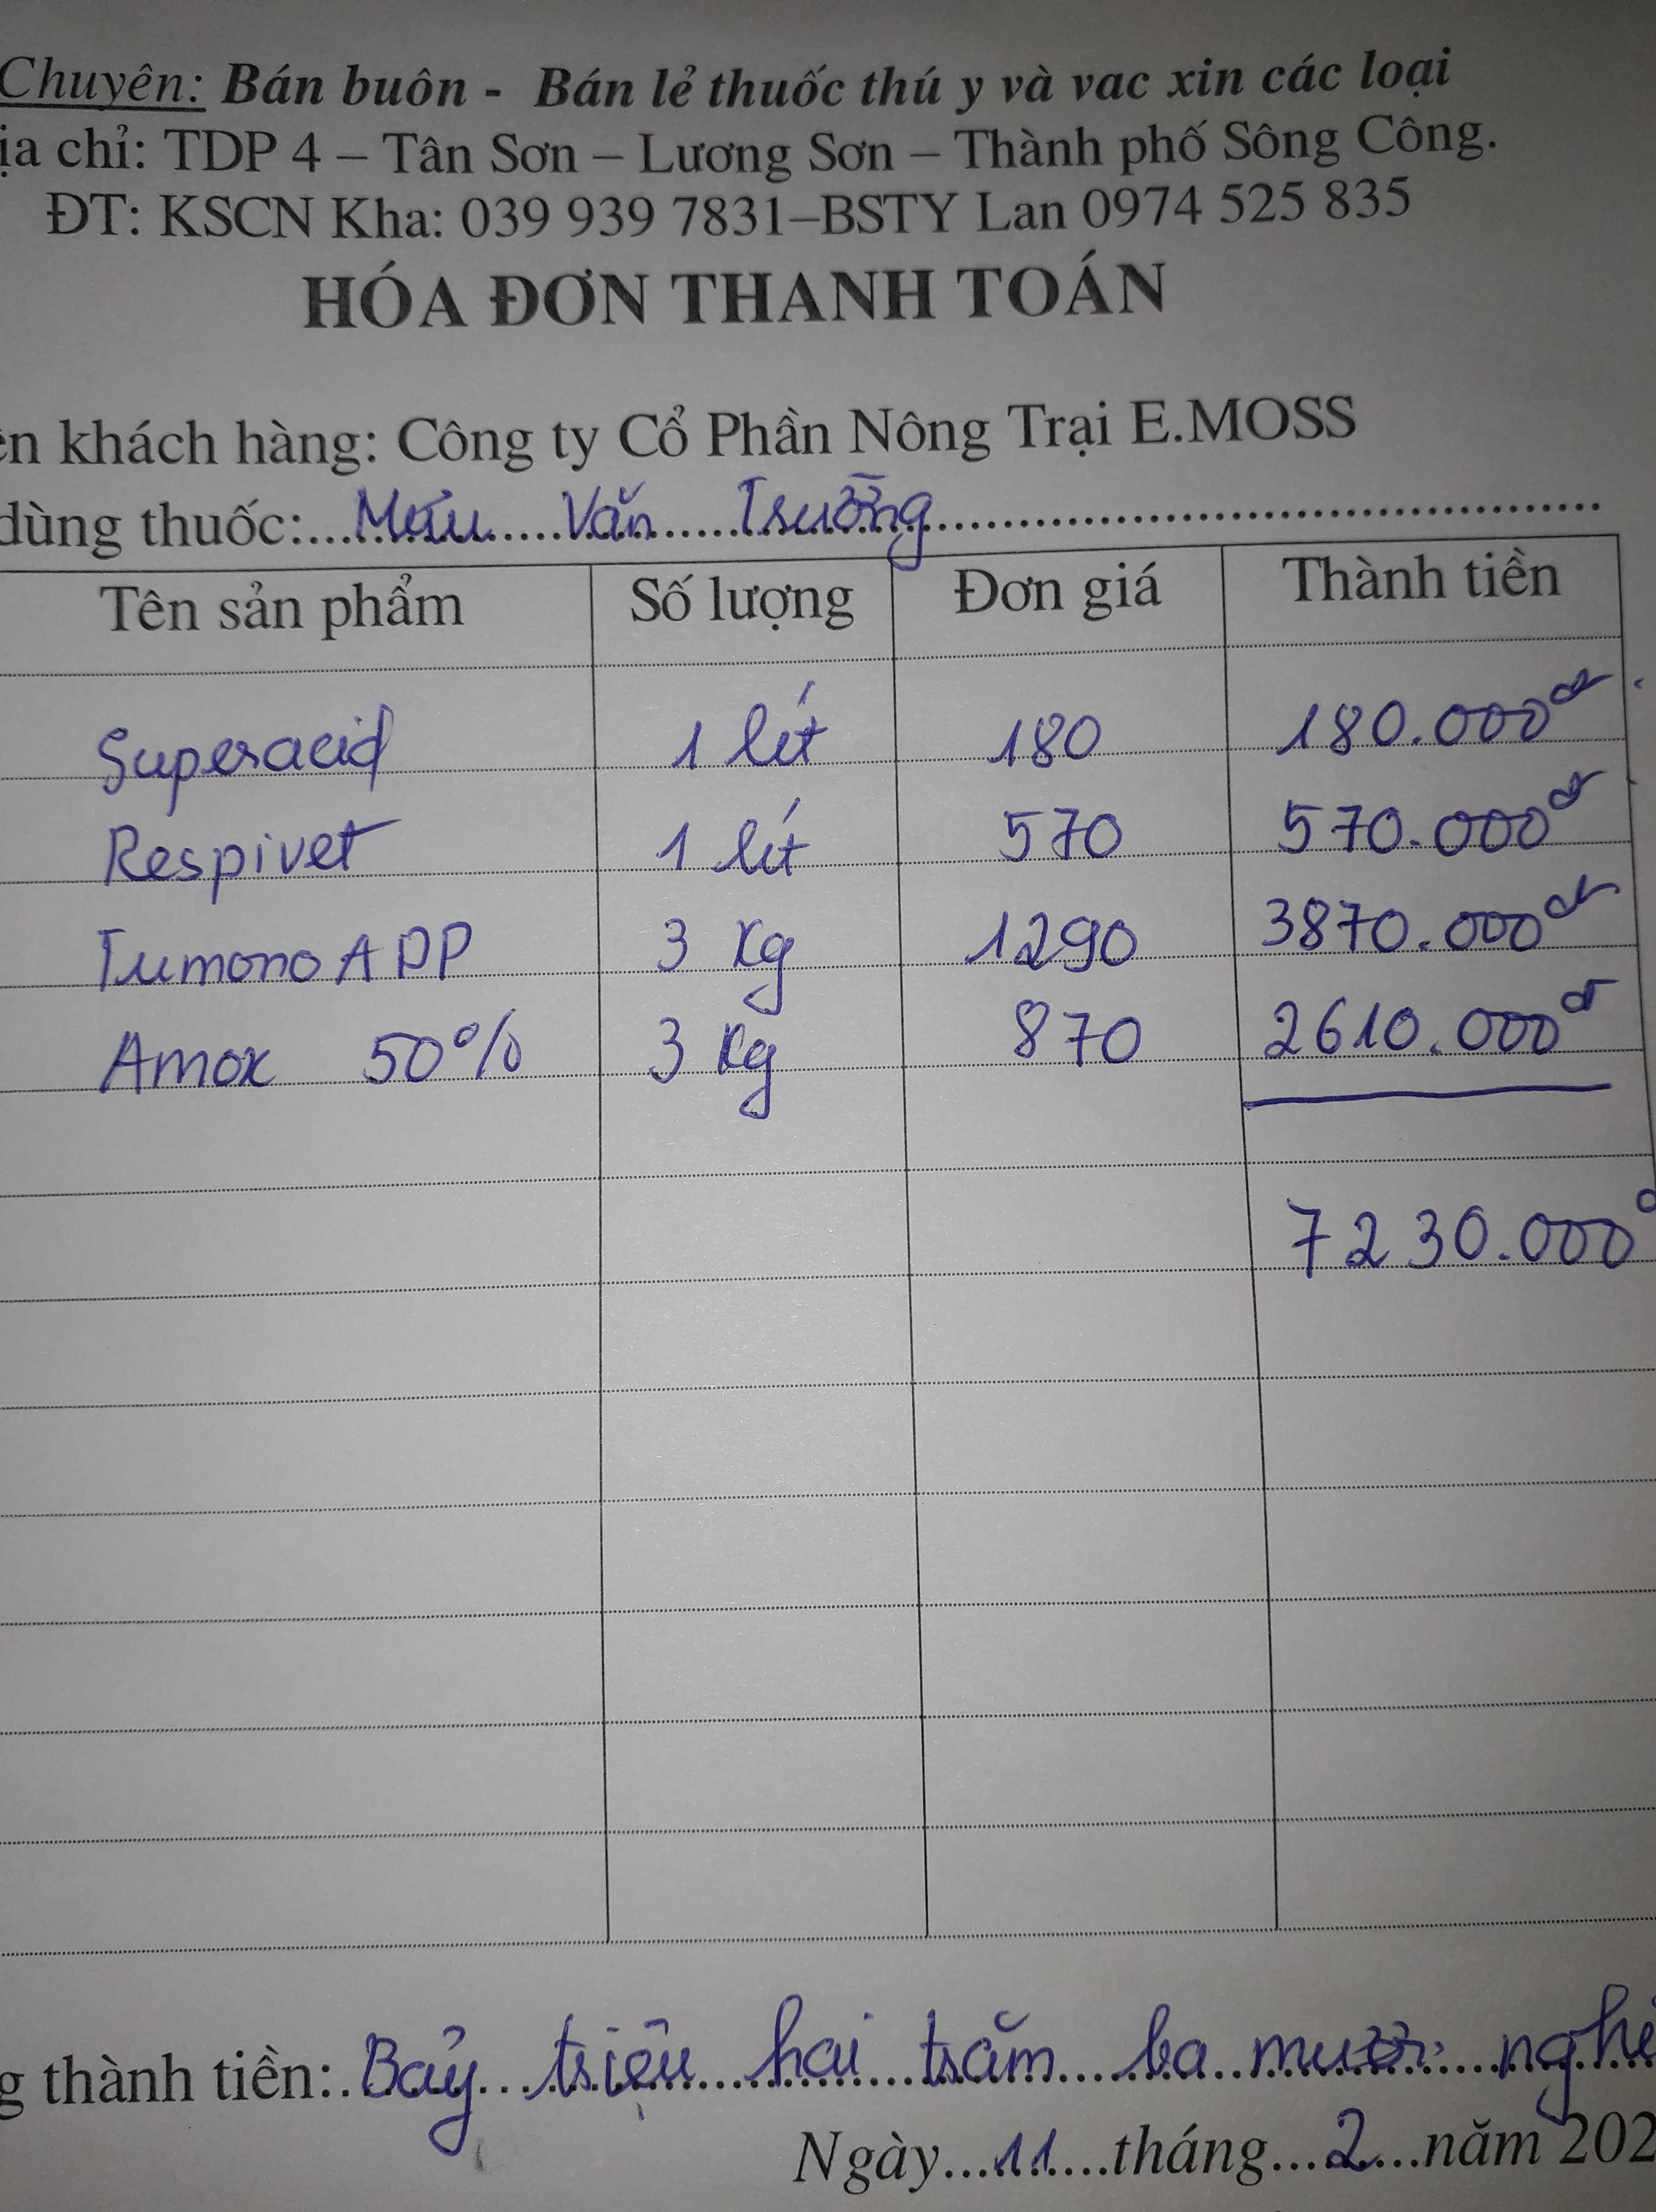 Chuyên: Bán buôn - Bán lẻ thuốc thú y và vac xin các loại
ịa chỉ: TDP 4 – Tân Sơn – Lương Sơn – Thành phố Sông Công.
ĐT: KSCN Kha: 039 939 7831–BSTY Lan 0974 525 835
HÓA ĐƠN THANH TOÁN
ên khách hàng: Công ty Cổ Phần Nông Trại E.MOSS
dùng thuốc: Văn Trường
Tên sản phẩm Số lượng Đơn giá Thành tiền
Superacid 1 lít 180 180.000đ
Respivet 1 lít 570 570.000đ
TumonoADP 3 kg 1290 3870.000đ
Amox 50% 3 kg 870 2610.000đ
7230.000đ
g thành tiền: Bảy triệu hai trăm ba mươi nghì
Ngày...11...tháng...2...năm 202